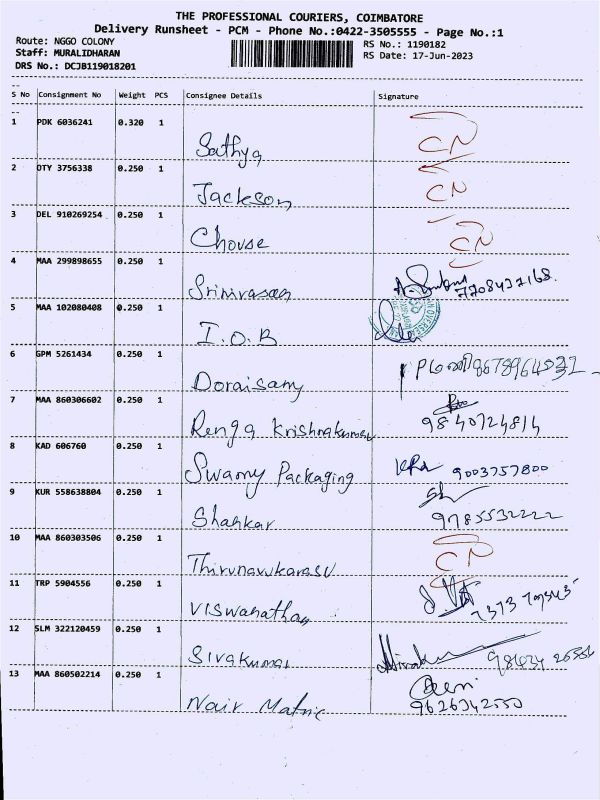 THE PROFESSIONAL COURIERS, COIMBATORE
Delivery Runsheet - PCM - Phone No.:0422-3505555 - Page No.:1
Route: NGGO COLONY
RS No.: 1190182
Staff: MURALIDHARAN
RS Date: 17-Jun-2023
DRS No.: DCJB119018201
S No Consignment No Weight PCS Consignee Details Signature
1 PDK 6036241 0.320 1 Sathya CN
2 OTY 3756338 0.250 1 Jackson CN
3 DEL 910269254 0.250 1 Chouse CN
4 MAA 299898655 0.250 1 Srinivasan 7708437168.
5 MAA 102080408 0.250 1 I.O.B
6 GPM 5261434 0.250 1 Doraisamy
7 MAA 860306602 0.250 1 Renga Krishnakumar 9840724814
8 KAD 606760 0.250 1 Swamy Packaging 9003757800
9 KUR 558638804 0.250 1 Shankar 9785532222
10 MAA 860303506 0.250 1 Thirunavukarasu CN
11 TRP 5904556 0.250 1 Viswanathan
12 SLM 322120459 0.250 1 Sivakumar
13 MAA 860502214 0.250 1 Nair Matric 9626342550